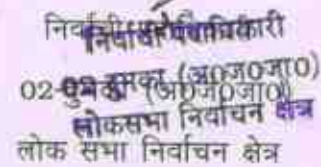 निर्वाची पदाधिकारी
02-दुमका (अ0ज0जा0)
लोकसभा निर्वाचन क्षेत्र
लोक सभा निर्वाचन क्षेत्र